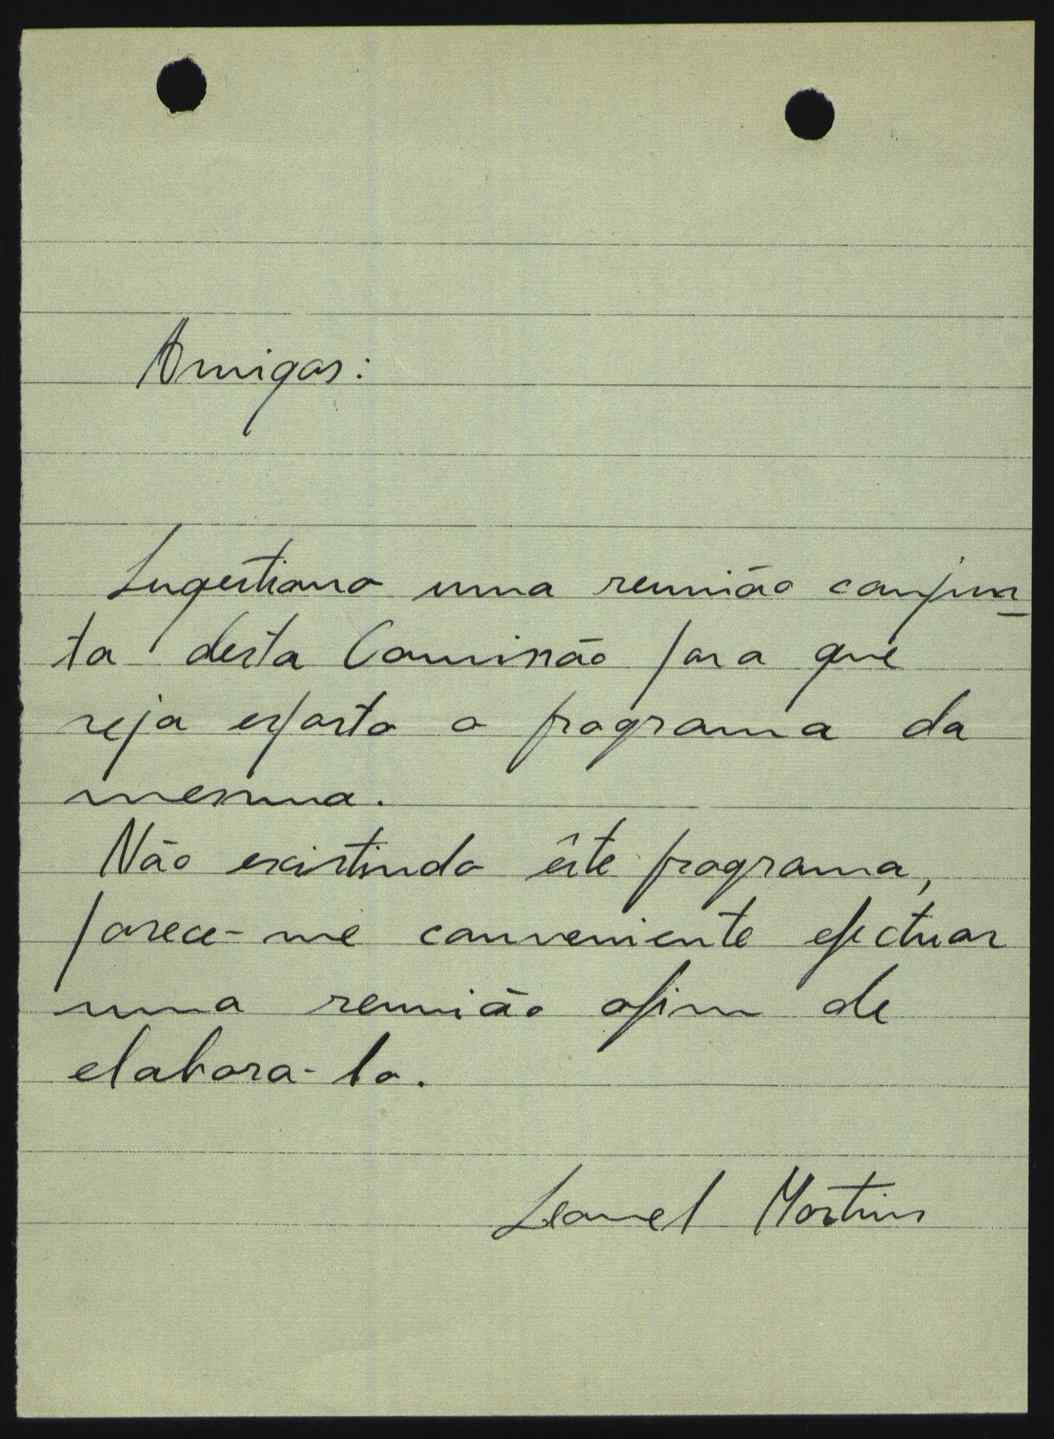 Amigos:
Sugestiono uma reunião conjun
ta desta Comissão para que
seja exposto o programa da
mesma.
Não existindo êste programa,
parece-me conveniente efectuar
uma reunião afim de
elabora-lo.
Leonel Martins